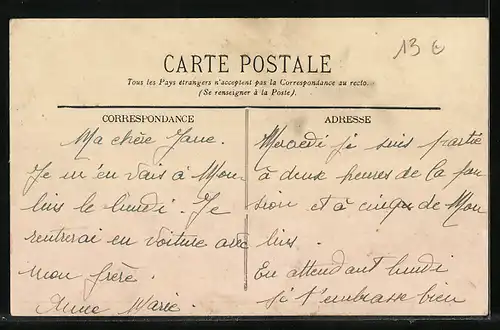 13 e
CARTE POSTALE
Tous les Pays étrangers n'acceptent pas la Correspondance au recto.
(Se renseigner à la Poste).
CORRESPONDANCE
Ma chère Jane.
Je m'en vais à Mou-
lins le lundi. Je
rentrerai en voiture avec
mon frère.
Anne Marie.
ADRESSE
Mercredi je suis partie
à deux heures de la pen
sion et à cinq de Mou
lins.
En attendant lundi
je t'embrasse bien